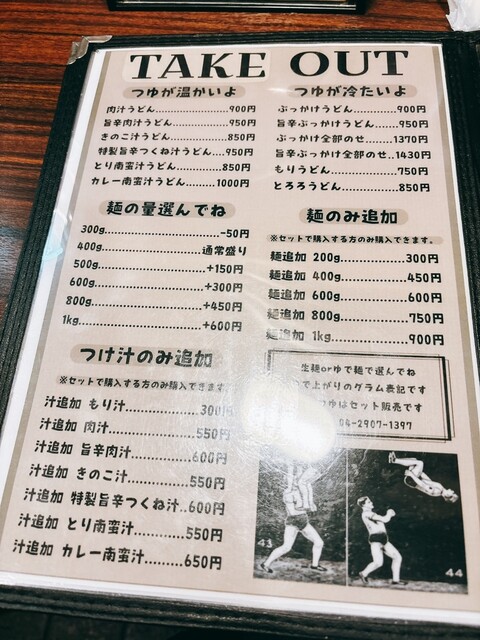 TAKE OUT
つゆが温かいよ
肉汁うどん..................900円
旨辛肉汁うどん..............950円
きのこ汁うどん..............850円
特製旨辛つくね汁うどん....950円
とり南蛮汁うどん............850円
カレー南蛮汁うどん.........1000円
麺の量選んでね
300g..................-50円
400g..................通常盛り
500g..................+150円
600g..................+300円
800g..................+450円
1kg..................+600円
つけ汁のみ追加
※セットで購入する方のみ購入できます
汁追加 もり汁............300円
汁追加 肉汁..............550円
汁追加 旨辛肉汁..........600円
汁追加 きのこ汁..........550円
汁追加 特製旨辛つくね汁..600円
汁追加 とり南蛮汁........550円
汁追加 カレー南蛮汁......650円
つゆが冷たいよ
ぶっかけうどん............900円
旨辛ぶっかけうどん........950円
ぶっかけ全部のせ..........1370円
旨辛ぶっかけ全部のせ..1430円
もりうどん................750円
とろろうどん..............850円
麺のみ追加
※セットで購入する方のみ購入できます。
麺追加 200g..............300円
麺追加 400g..............450円
麺追加 600g..............600円
麺追加 800g..............750円
麺追加 1kg..............900円
生麺orゆで麺で選んでね
で上がりのグラム表記です
つゆはセット販売です
04-2907-1397
43
44